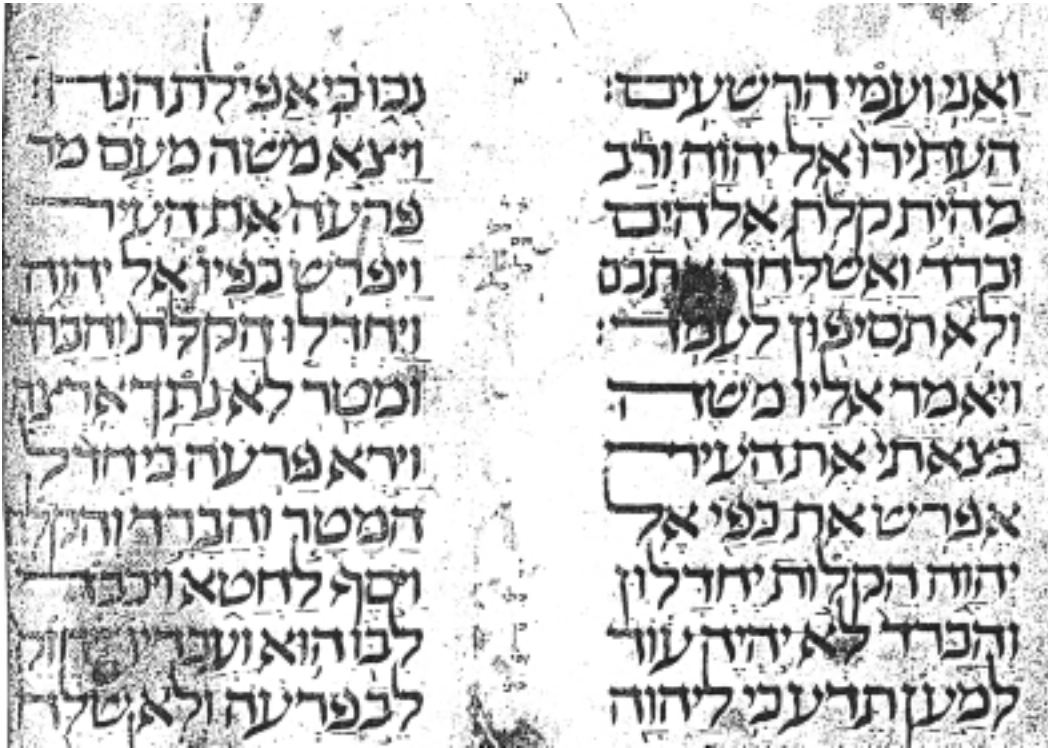 ואני ועמי הרשעים:
העתירו אל יהוה ורב
מהית קלת אלהים
וברד ואשלחה אתכם
ולא תסיפון לעמד:
ויאמר אליו משה
כצאתי את העיר
אפרש את כפי אל
יהוה הקלות יחדלון
והברד לא יהיה עוד
למען תדע כי ליהוה
נכו כי אפילת הנה
ויצא משה מעם
פרעה את העיר
ויפרש כפיו אל יהוה
ויחדלו הקלת והברד
ומטר לא נתך ארצה
וירא פרעה כי חדל
המטר והברד והקלת
ויסף לחטא ויכבד
לבו הוא ועבדיו ויחזק
לב פרעה ולא שלח